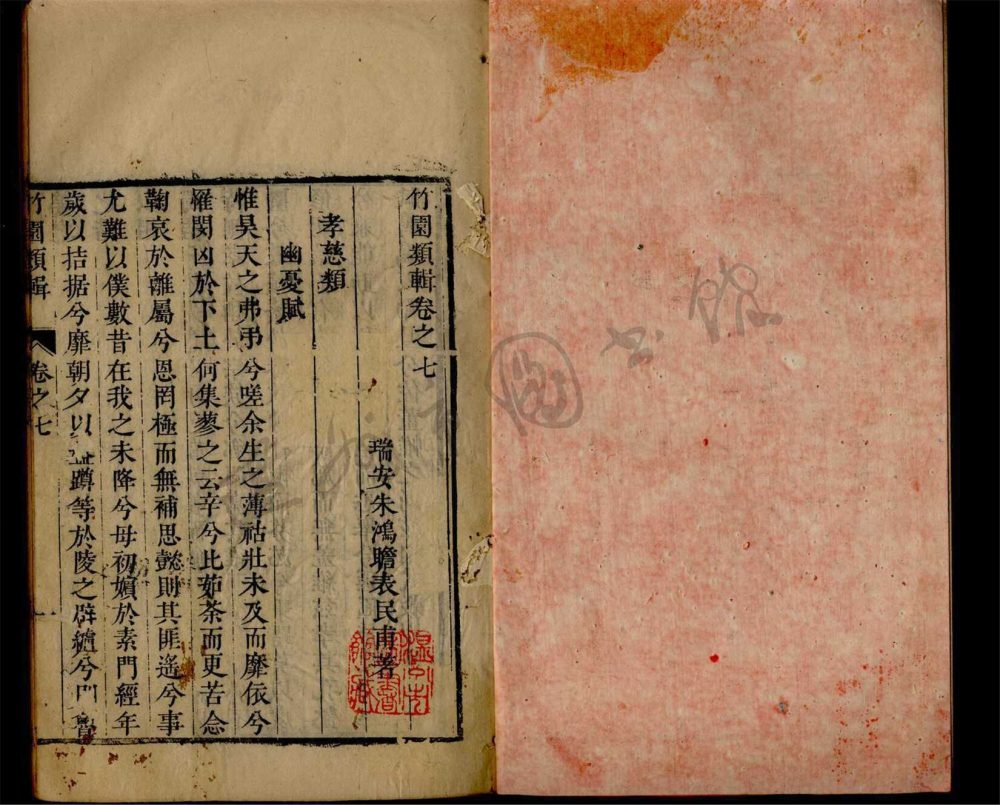 竹園類輯卷之七
瑞安朱鴻瞻表民甫著
孝慈類
幽憂賦
惟昊天之弗弔兮嗟余生之薄祜壯未及而靡依兮
罹閔凶於下土何集蓼之云辛兮比茹荼而更苦念
鞠哀於離屬兮恩罔極而無補思懿則其匪遙兮事
尤難以僕數昔在我之未降兮母初嬪於素門經年
歲以拮据兮靡朝夕以 蹲等於陵之辟纑兮
竹園類輯
卷之七
一